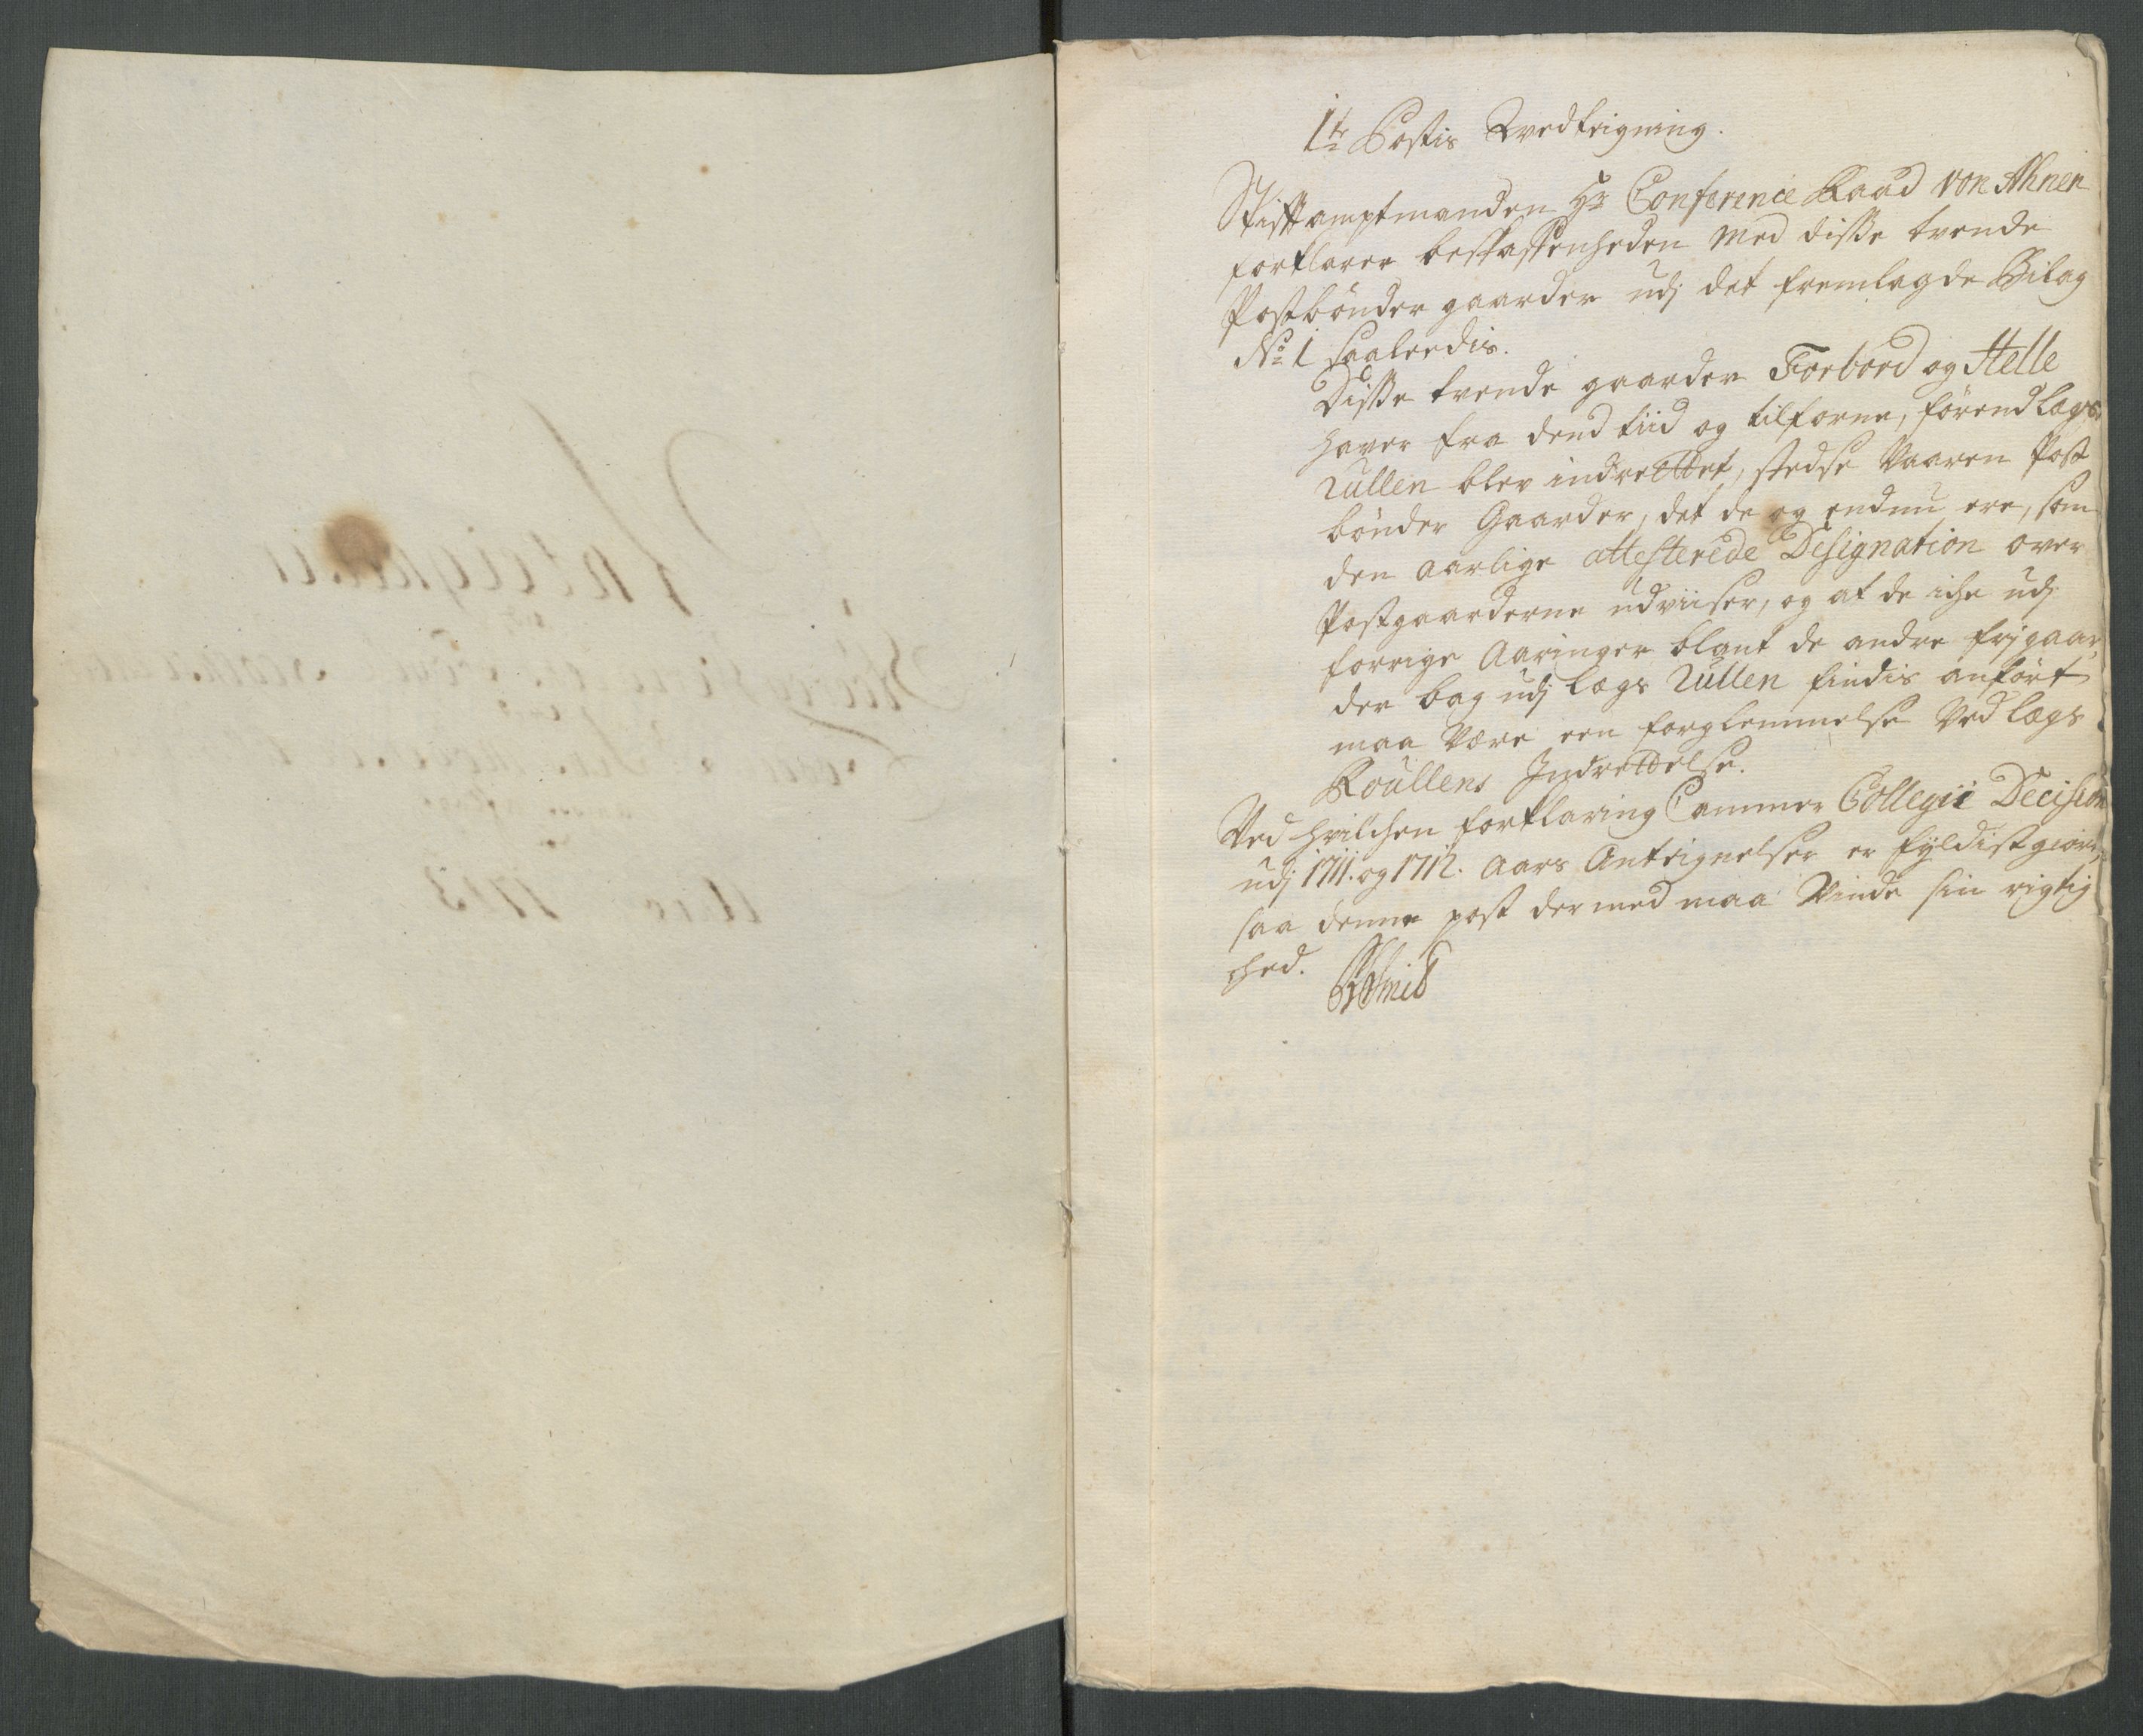 1te Postis Qvedteigning.
Stiftamptmanden Hr Conference Raad von Ahnen
forklarer beskaffenheden med disse tvende
Postbønder gaarder udj det fremlagde Bilag
No 1 saaleedis.
Disse tvende gaarder Forbord og Helle
haver fra dend tiid og tilforne, førend Lægs
Rullen blev indrettet, stedse Vaaren Post
bønder Gaarder, det de og endnu ere, som
den aarlige attesterede Designation over
Postgaarderne udviiser, og at de iche udj
forrige Aaringer blant de andre frj gaar,
der bag udj Lægs Rullen findis anført
maa Være een forglemmelse Ved Lægs
Roullens Indrettelse.
Ved hvilchen forklaring Cammer Collegii Decision
udj 1711. og 1712. Aars Anteignelser er fyldist giort,
saa denne post dermed maa Vinde sin rigtig
hed.